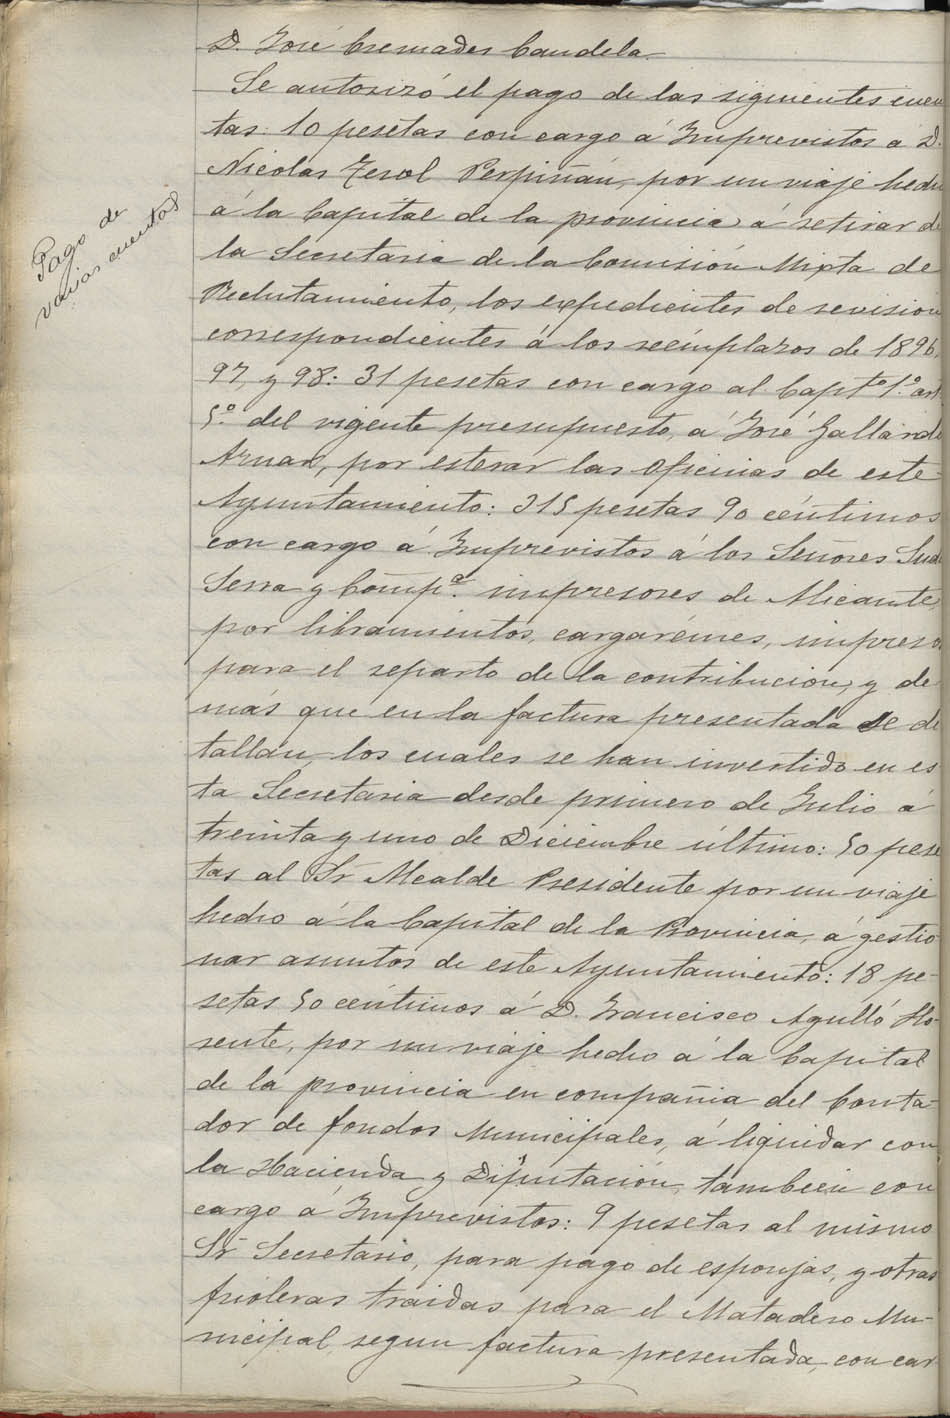 D. José Cremades Candela.
Se autorizó el pago de las siguientes cuen
tas: 10 pesetas con cargo á Imprevistos a D.
Nicolas Terol Perpiñán, por un viaje hecho
á la Capital de la provincia á retirar de
la Secretaria de la Comisión Mixta de
Reclutamiento, los expedientes de revision
correspondientes á los reemplazos de 1896,
97, y 98: 31 pesetas con cargo al Capto 1.º art.
5.º del vigente presupuesto, á José Gallardo
Aznar, por esterar las Oficinas de este
Ayuntamiento: 315 pesetas 90 céntimos
con cargo á Imprevistos á los Señores
Serra y Compª. impresores de Alicante,
por libramientos, cargarémes, impresos
para el reparto de la contribucion, y de
más que en la factura presentada se de
tallan, los cuales se han invertido en es
ta Secretaria desde primero de Julio á
treinta y uno de Diciembre último: 50 pese
tas al Sr Alcalde Presidente por un viaje
hecho á la Capital de la Provincia, á gestio
nar asuntos de este Ayuntamiento: 18 pe-
setas 50 céntimos á D. Francisco Agulló Flo-
rente, por un viaje hecho á la Capital
de la provincia en compañia del Conta-
dor de fondos Municipales, á liquidar con
la Hacienda y Diputación, tambien con
cargo á Imprevistos: 9 pesetas al mismo
Sr Secretario, para pago de esponjas, y otras
frioleras traidas para el Matadero Mu-
nicipal, segun factura presentada, con car
Pago de
varias cuentas